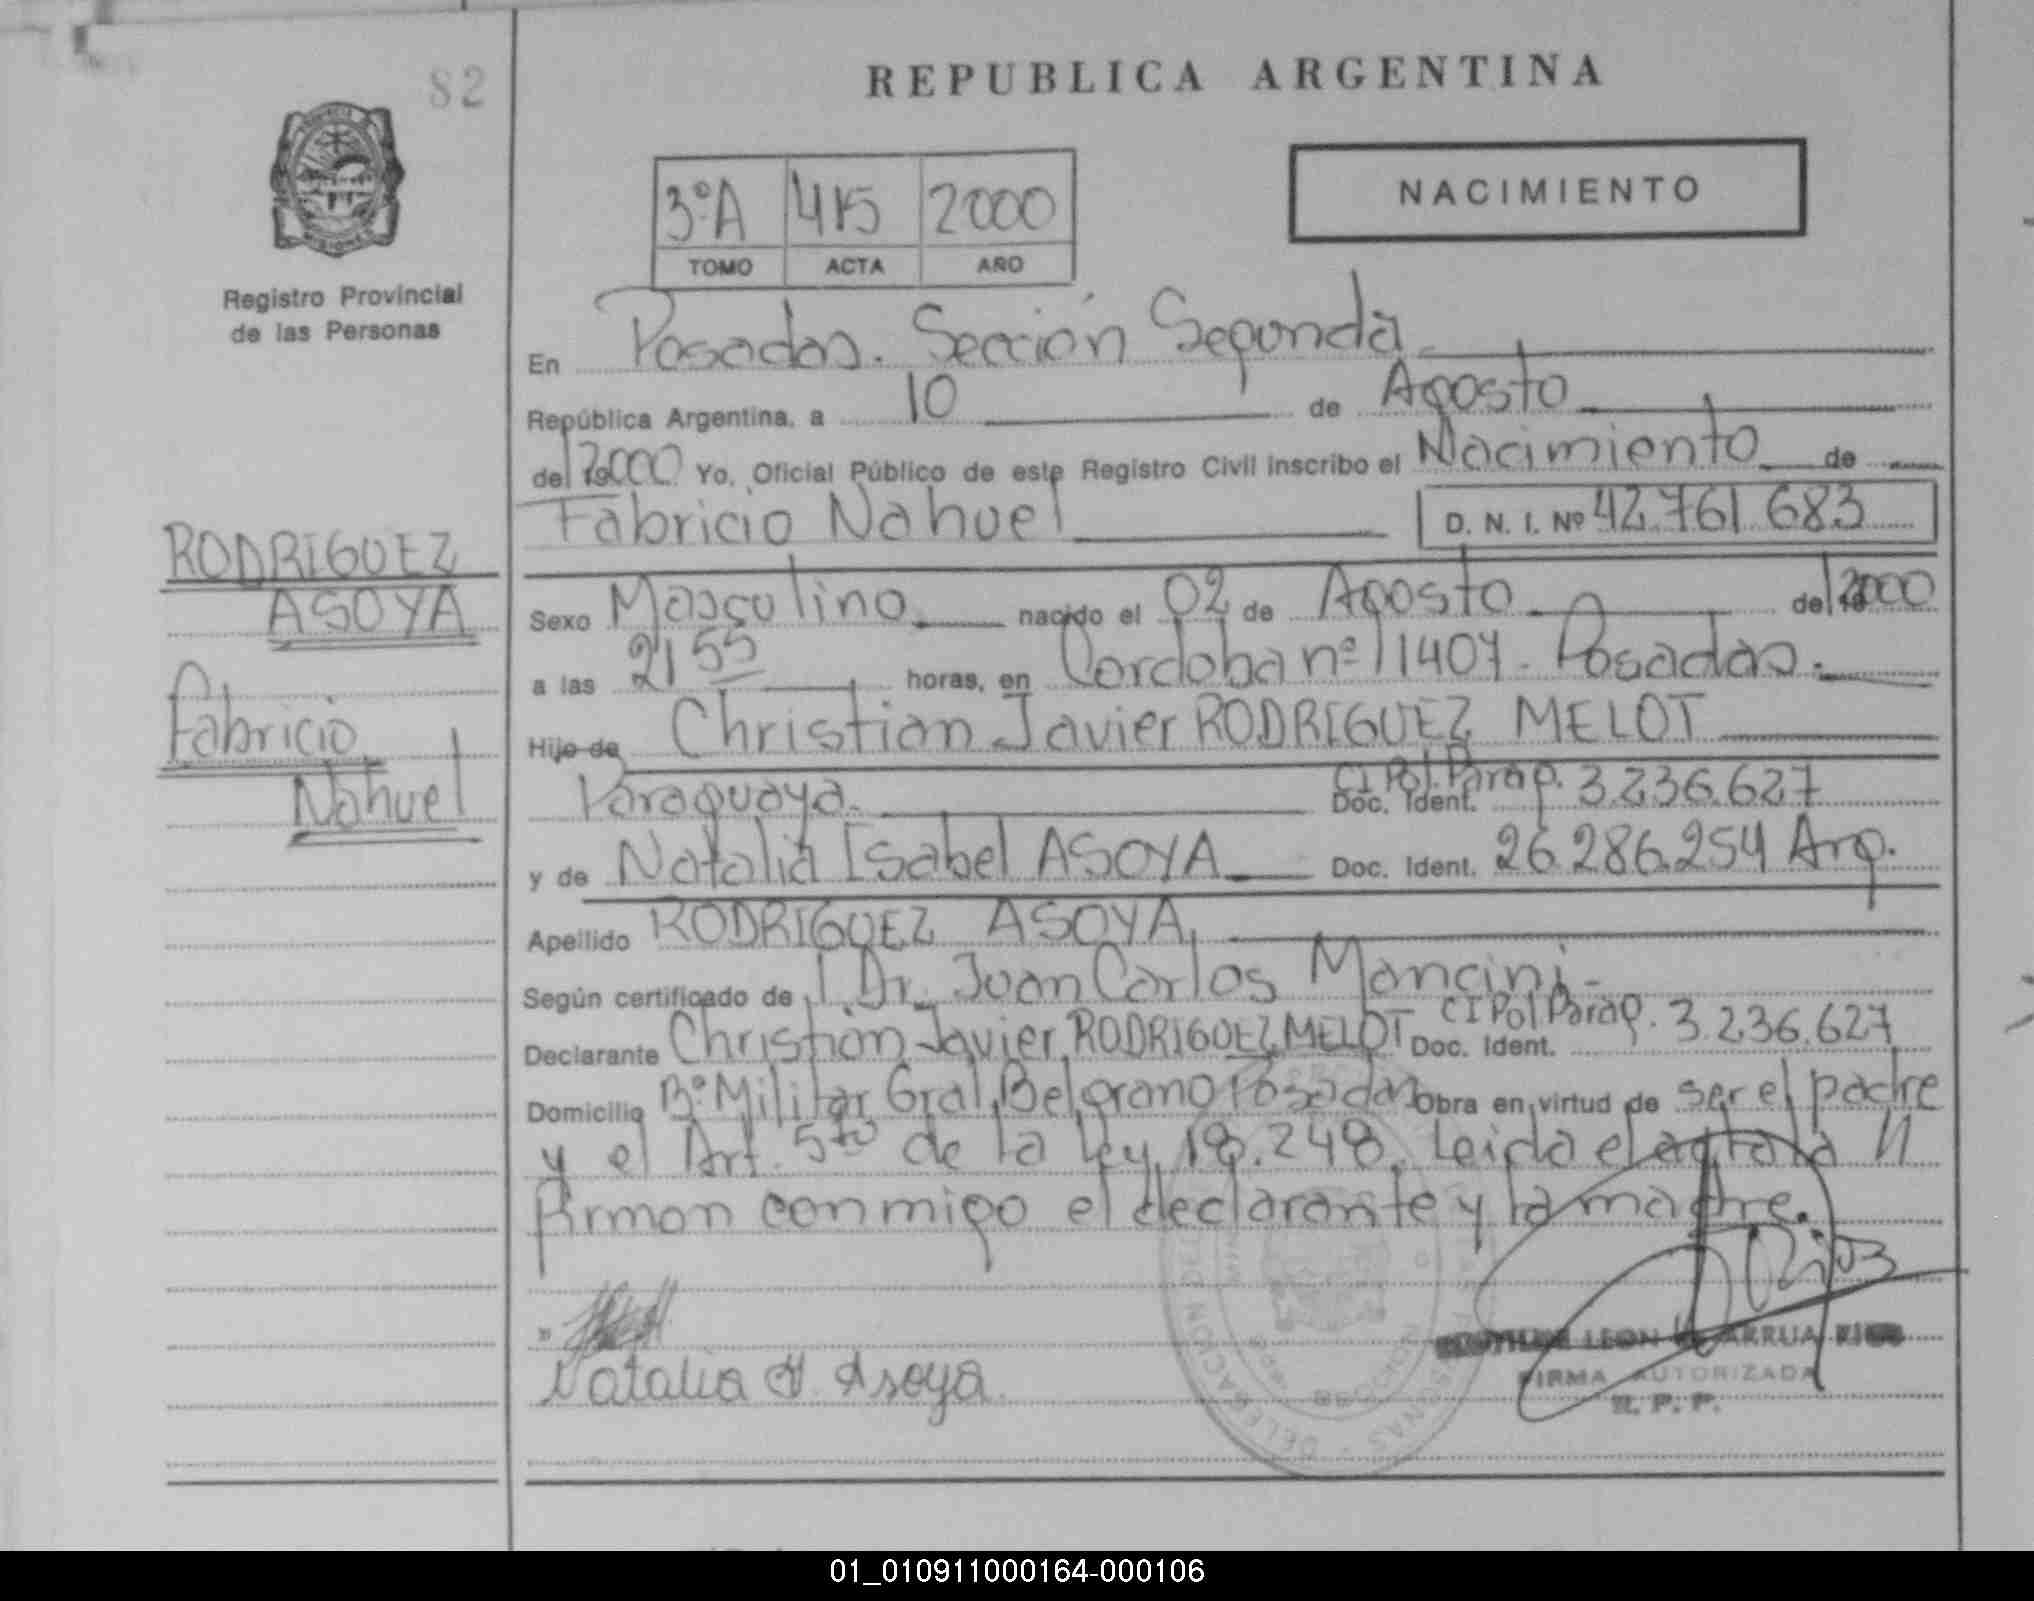 82
REPUBLICA ARGENTINA
NACIMIENTO
3ºA 415 2000
TOMO ACTA AÑO
Registro Provincial
de las Personas
En Posadas. Sección Segunda
República Argentina, a 10 de Agosto
de 2000 Yo, Oficial Público de este Registro Civil inscribo el Nacimiento de
Fabricio Nahuel D. N. I. Nº 42.761.683
RODRIGUEZ
ASOYA
Fabricio
Nahuel
Sexo Masculino nacido el 02 de Agosto de 2000
a las 21 55 horas, en Cordoba nº 1407. Posadas.
Hijo de Christian Javier RODRIGUEZ MELOT
Paraguaya. CI Pol. Parag. Doc. Ident. 3.236.627
y de Natalia Isabel ASOYA Doc. Ident. 26.286.254 Arg.
Apellido RODRIGUEZ ASOYA
Según certificado de Dr. Juan Carlos Mancini
Declarante Christian Javier RODRIGUEZ MELOT CI Pol Parag. Doc. Ident. 3.236.627
Domicilio Bº Militar Gral. Belgrano Posadas Obra en virtud de ser el padre
y el Art. 5to de la ley 18.248. Leida el acta la
firman conmigo el declarante y la madre.
Natalia I. Asoya
LEON ARRUA RIOS
FIRMA AUTORIZADA
R. P. P.
01_010911000164-000106